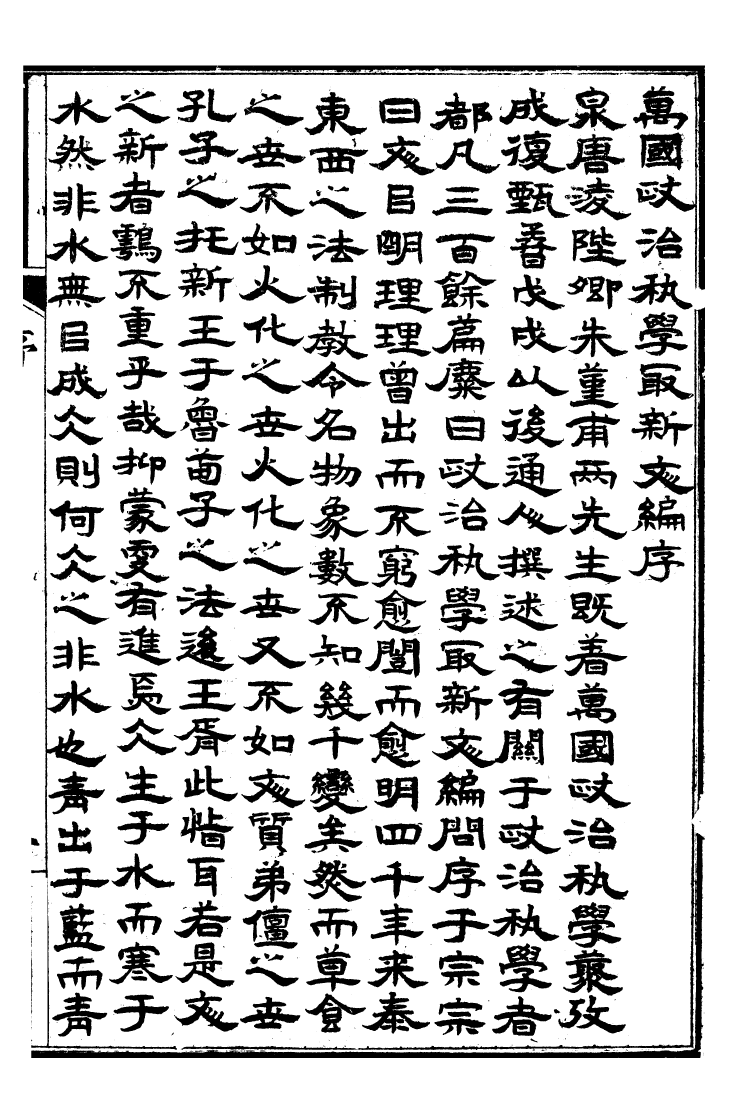 萬國政治秇學冣新文編序
泉唐淩陛卿朱菫甫兩先生既著萬國政治秇學叢攷
成復甄戊戌以後通人撰述之有關于政治秇學者
都凡三百餘篇麋曰政治秇學冣新文編問序于宗宗
曰文㠯明理理曾出而不窮愈闓而愈明四千年来奉
東西之法制敎令名物象數不知幾千變矣然而草食
之世不如火化之世火化之世又不如文質弟儃之世
孔子之托新王于魯荀子之法後王胥此恉耳若是文
之新者不重乎哉抑蒙更有進焉仌生于水而寒于
水然非水無㠯成仌則何仌之非水也靑出于藍而靑